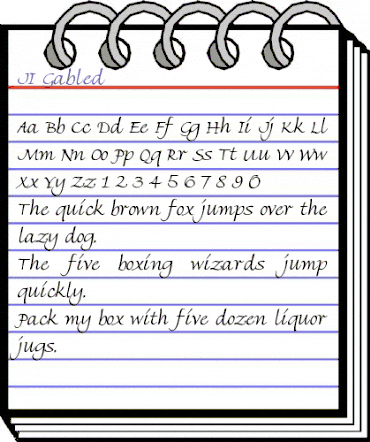 JI Gabled
Aa Bb Cc Dd Ee Ff Gg Hh Ii Jj Kk Ll
Mm Nn Oo Pp Qq Rr Ss Tt Uu Vv Ww
Xx Yy Zz 1 2 3 4 5 6 7 8 9 0
The quick brown fox jumps over the
lazy dog.
The five boxing wizards jump
quickly.
Pack my box with five dozen liquor
jugs.